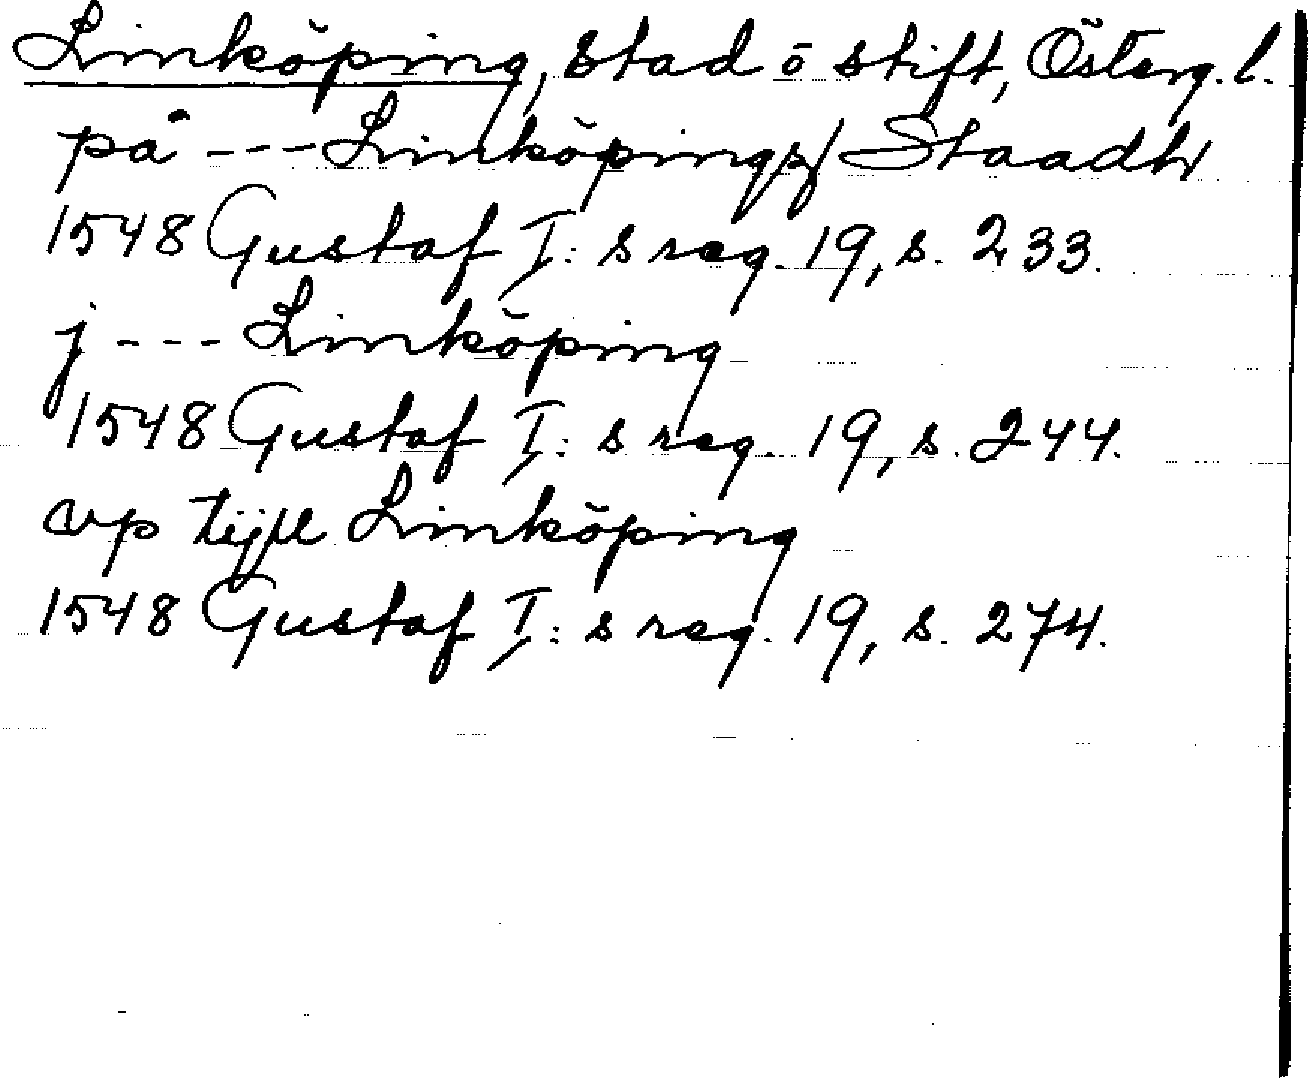 Linköping, Stad o stift, Österg. l.
på --- Linköpingz/ Staadh
1548 Gustaf I: s reg. 19, s. 233.
j --- Linköping
1548 Gustaf I: s reg. 19, s. 244.
vp tijll Linköping
1548 Gustaf I: s reg. 19, s. 274.